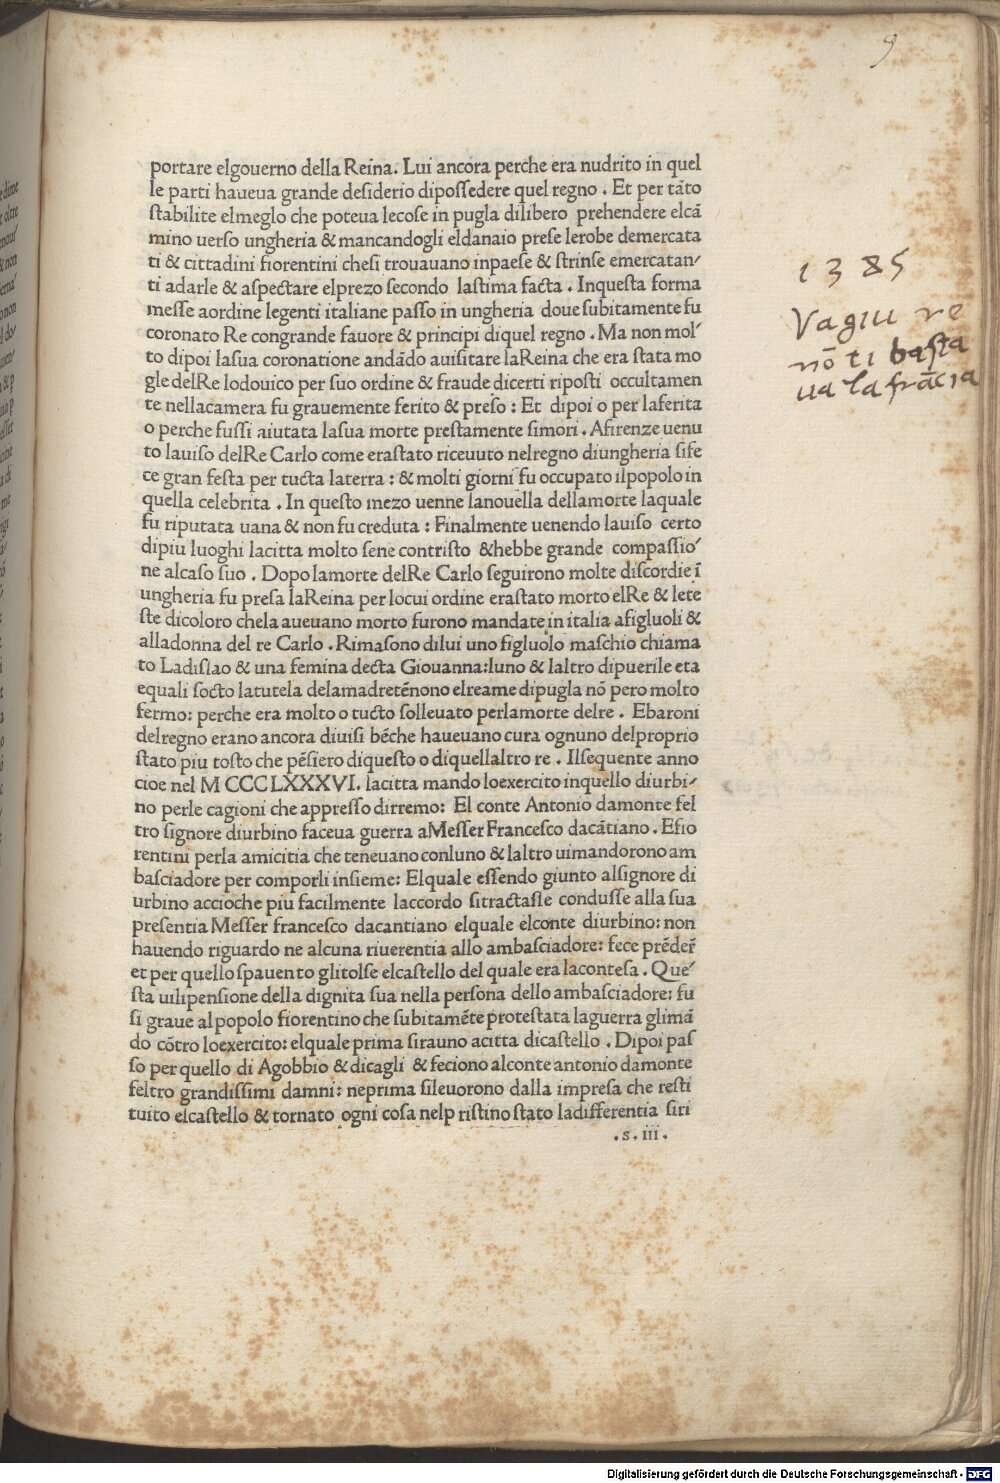 9
portare elgouerno della Reina. Lui ancora perche era nudrito in quel
le parti haueua grande deſiderio dipoſſedere quel regno . Et per tāto
ſtabilite elmeglo che poteua lecoſe in pugla dilibero prehendere elcā
mino uerſo ungheria & mancandogli eldanaio preſe lerobe demercata
ti & cittadini fiorentini cheſi trouauano inpaeſe & ſtrinſe emercatan⸗
ti adarle & aſpectare elprezo ſecondo laſtima facta . Inqueſta forma
meſſe aordine legenti italiane paſſo in ungheria doue ſubitamente fu
coronato Re congrande fauore & principi di quel regno . Ma non mol⸗
to dipoi laſua coronatione andādo auiſitare laReina che era ſtata mo
gle delRe lodouico per ſuo ordine & fraude dicerti ripoſti occultamen
te nellacamera fu grauemente ferito & preſo : Et dipoi o per laferita
o perche fuſſi aiutata laſua morte preſtamente ſimori . Afirenze uenu
to lauiſo delRe Carlo come eraſtato riceuuto nelregno diungheria ſife
ce gran feſta per tucta laterra : & molti giorni fu occupato ilpopolo in
quella celebrita . In queſto mezo uenne lanouella dellamorte laquale
fu riputata uana & non fu creduta : Finalmente uenendo lauiſo certo
dipiu luoghi lacitta molto ſene contriſto &hebbe grande compaſſio⸗
ne alcaſo ſuo . Dopo lamorte delRe Carlo ſeguirono molte diſcordie ī
ungheria fu preſa laReina per locui ordine eraſtato morto elRe & lete
ſte dicoloro chela aueuano morto furono mandate in italia afigluoli &
alladonna del re Carlo . Rimaſono dilui uno figluolo maſchio chiama
to Ladiſlao & una femina decta Giouanna:luno & laltro dipuerile eta
equali ſocto latutela delamadre tēnono elreame dipugla nō pero molto
fermo: perche era molto o tucto ſolleuato perlamorte delre . Ebaroni
delregno erano ancora diuiſi bēche haueuano cura ognuno delproprio
ſtato piu toſto che pēſiero diqueſto o diquellaltro re . Ilſequente anno
cioe nel M CCCLXXXVI. lacitta mando loexercito inquello diurbi⸗
no perle cagioni che appreſſo dirremo: El conte Antonio damonte fel
tro ſignore diurbino faceua guerra aMeſſer Franceſco dacātiano . Efio
rentini perla amicitia che teneuano conluno & laltro uimandorono am
baſciadore per comporli inſieme: Elquale eſſendo giunto alſignore di
urbino accioche piu facilmente laccordo ſitractaſſe conduſſe alla ſua
preſentia Meſſer franceſco dacantiano elquale elconte diurbino: non
hauendo riguardo ne alcuna riuerentia allo ambaſciadore: fece prēder̄
et per quello ſpauento glitolſe elcaſtello del quale era laconteſa . Que⸗
ſta uilipenſione della dignita ſua nella perſona dello ambaſciadore: fu
ſi graue al popolo fiorentino che ſubitamēte proteſtata laguerra glimā
do cōtro loexercito: elquale prima ſirauno acitta dicaſtello . Dipoi paſ
ſo per quello di Agobbio & dicagli & feciono alconte antonio damonte
feltro grandiſſimi damni: neprima ſileuorono dalla impreſa che reſti
tuito elcaſtello & tornato ogni coſa nelp riſtino ſtato ladifferentia ſiri
.s.iii.
1385
Vagiu re
nō ti baſta
ua la frācia
Digitalisierung gefördert durch die Deutsche Forschungsgemeinschaft - DFG